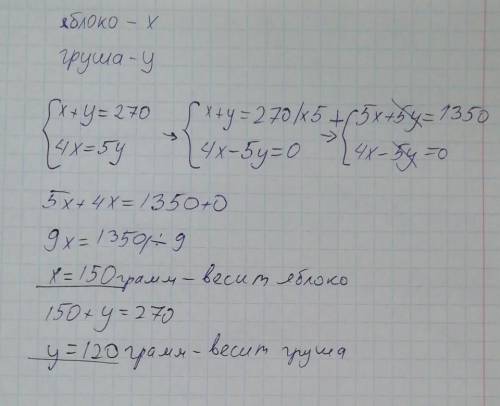 яблоко - x
груша - y
{x+y=270 → {x+y=270 |x5 + → {5x+5y=1350
{4x=5y {4x-5y=0 {4x-5y=0
5x+4x=1350+0
9x=1350 | ÷ 9
x=150 грамм - весит яблоко
150+y=270
y=120 грамм - весит груша